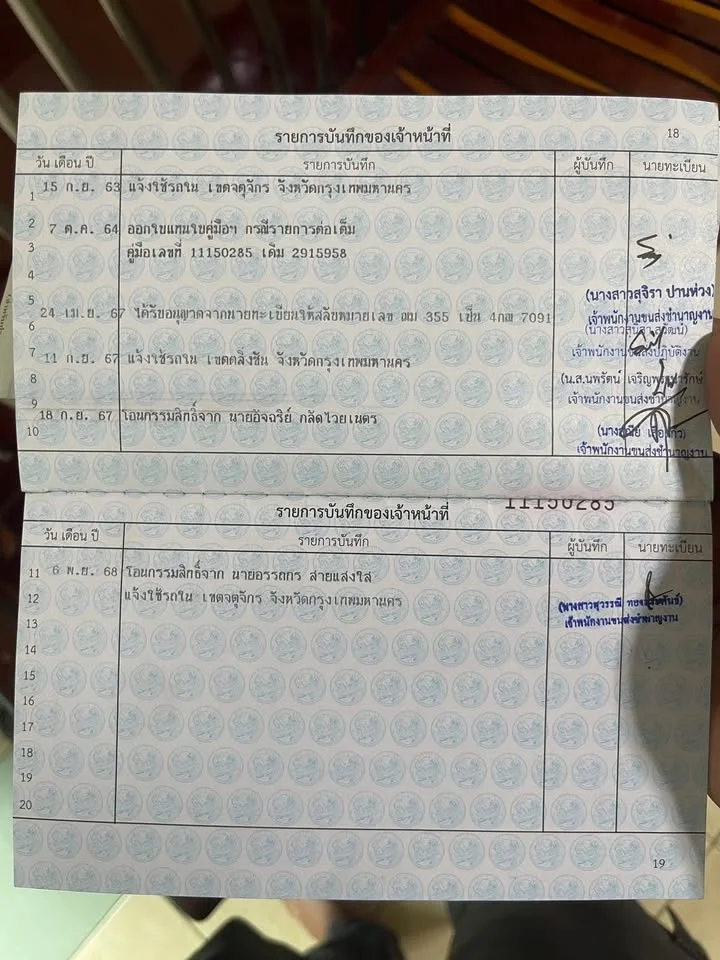 18
รายการบันทึกของเจ้าหน้าที่
วัน เดือน ปี รายการบันทึก ผู้บันทึก นายทะเบียน
1 15 ก.ย. 63 แจ้งใช้รถใน เขตจตุจักร จังหวัดกรุงเทพมหานคร
2 7 ต.ค. 64 ออกใบแทนใบคู่มือฯ กรณีรายการต่อเต็ม
3 คู่มือเลขที่ 11150285 เดิม 2915958
4
(นางสาวสุจิรา ปานห่วง)
5 24 เม.ย. 67 ได้รับอนุญาตจากนายทะเบียนให้สลับหมายเลข ฌม 355 เป็น 4กฌ 7091 เจ้าพนักงานขนส่งชำนาญงาน
6
7 11 ก.ย. 67 แจ้งใช้รถใน เขตตลิ่งชัน จังหวัดกรุงเทพมหานคร เจ้าพนักงานขนส่งปฏิบัติงาน
8 (น.ส.นพรัตน์
เจ้าพนักงานขนส่งชำนาญงาน
9
18 ก.ย. 67 โอนกรรมสิทธิ์จาก นายอัจฉริย์ กลัดไวยเนตร
10 เจ้าพนักงานขนส่งชำนาญงาน
11150285
รายการบันทึกของเจ้าหน้าที่
วัน เดือน ปี รายการบันทึก ผู้บันทึก นายทะเบียน
11 6 พ.ย. 68 โอนกรรมสิทธิ์จาก นายอรรถกร สายแสงใส
12 แจ้งใช้รถใน เขตจตุจักร จังหวัดกรุงเทพมหานคร (นางสาวสุวรรณี
เจ้าพนักงานขนส่งชำนาญงาน
13
14
15
16
17
18
19
20
19